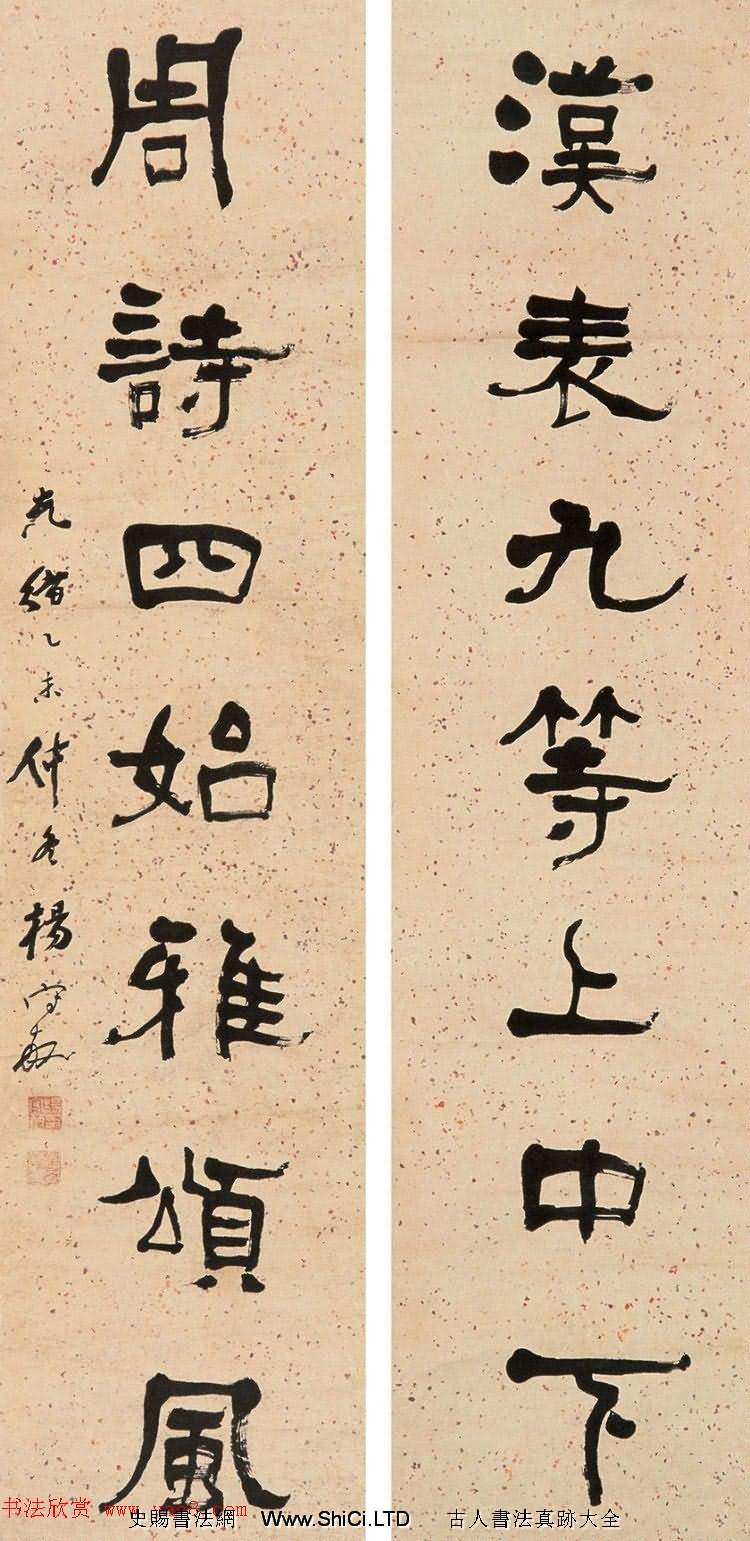 漢表九等上中下
周詩四始雅頌風
光緒乙未仲冬楊守敬
书法欣赏
史賜書法網 Www.ShiCi.LTD 古人書法真跡大全